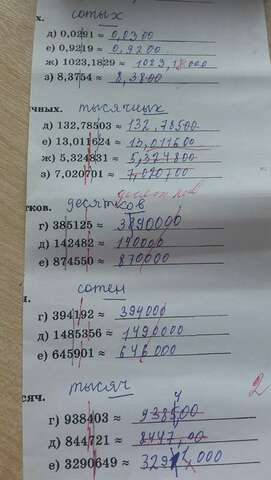 х. сотых
д) 0,0291 ≈ 0,0300
е) 0,9219 ≈ 0,9200
ж) 1023,1829 ≈ 1023,18000
з) 8,3754 ≈ 8,3800
чных. тысячных
д) 132,78503 ≈ 132,78500
е) 13,011624 ≈ 13,011600
ж) 5,324831 ≈ 5,324800
з) 7,020701 ≈ 7,020700
десятков
тков. десятков
г) 385125 ≈ 3890000
д) 142482 ≈ 140000
е) 874550 ≈ 870000
н. сотен
г) 394192 ≈ 394000
д) 1485356 ≈ 1490000
е) 645901 ≈ 646000
сяч. тысяч
2
г) 938403 ≈
д) 844721 ≈
е) 3290649 ≈